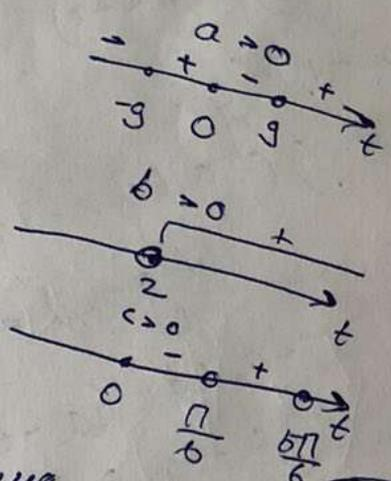 a > 0
- + - +
-9 0 9 t
b > 0
+
2 t
c > 0
- +
0 π/6 5π/6 t